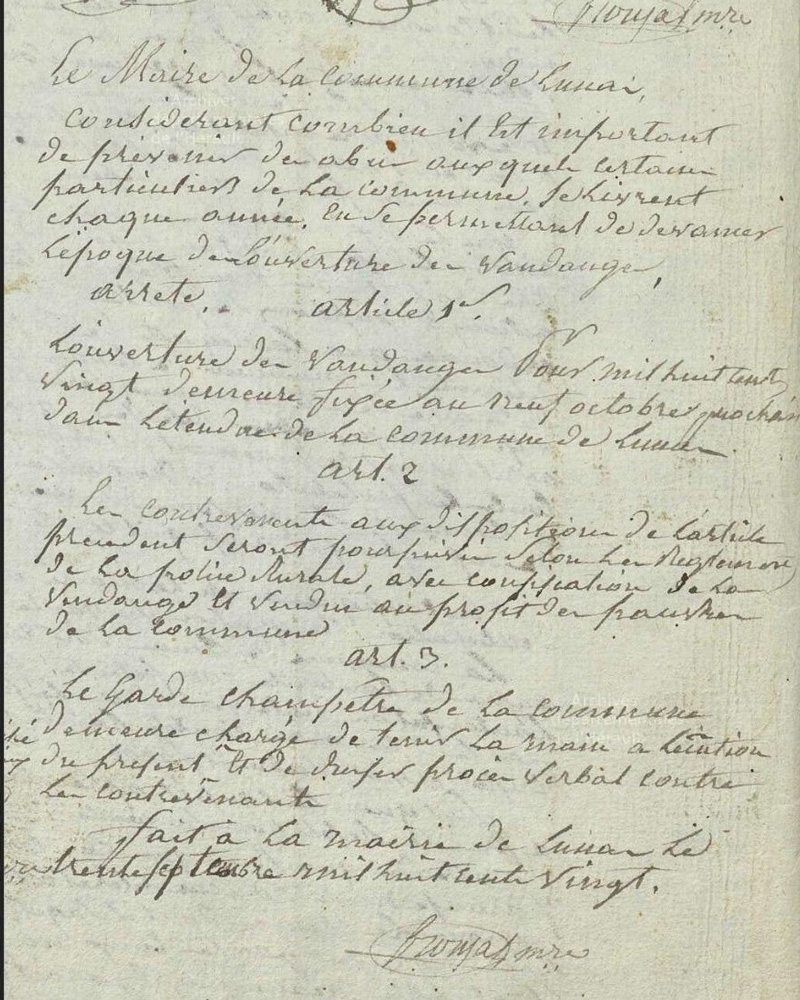 Le Maire de la commune de Lunas,
considerant combien il Est important
de prévenir des abus auxquels certains
particuliers de la commune, se livrent
chaque année, En se permettant de devancer
Lépoque de l'ouverture des vandanges,
arrete,
article 1er.
L'ouverture des Vandanges Pour mil huit cent
vingt demeure fixée au neuf octobre prochain
dans Letendue de La commune de Lunas
art. 2
Les contrevenants aux dispositions de L'article
precedent Seront poursuivis Selon Les Reglemens
de La police Rurale, avec confiscation de La
Vendange Et vendue au profit des pauvres
de la Commune
art. 3.
Le Garde champetre de La commune
demeure chargé de tenir La main a
du présent Et de dresser procès verbal contre
Les contrevenants
fait à La mairie de Lunas Le
trente septembre mil huit cent vingt.
mre